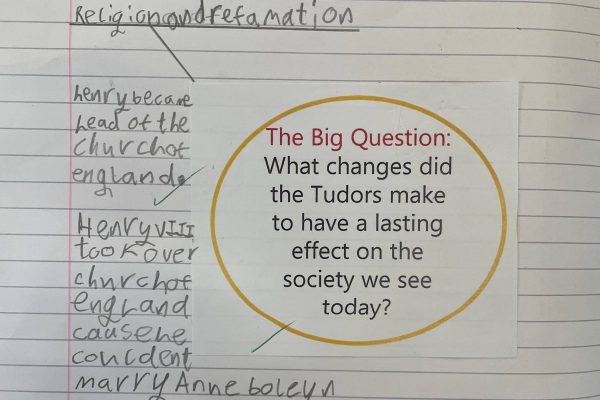 Religion and refamation
henry became
head of the
church of
england.
Henry VIII
took over
church of
england
cause he
couldent
marry Anne boleyn
The Big Question:
What changes did
the Tudors make
to have a lasting
effect on the
society we see
today?